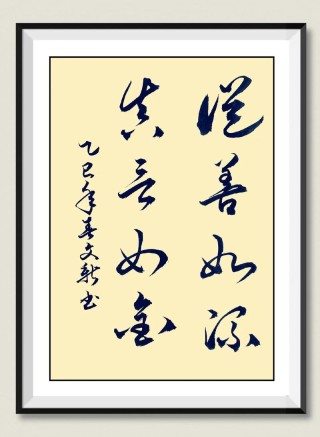 從善如流
真言如金
乙巳年春文新书